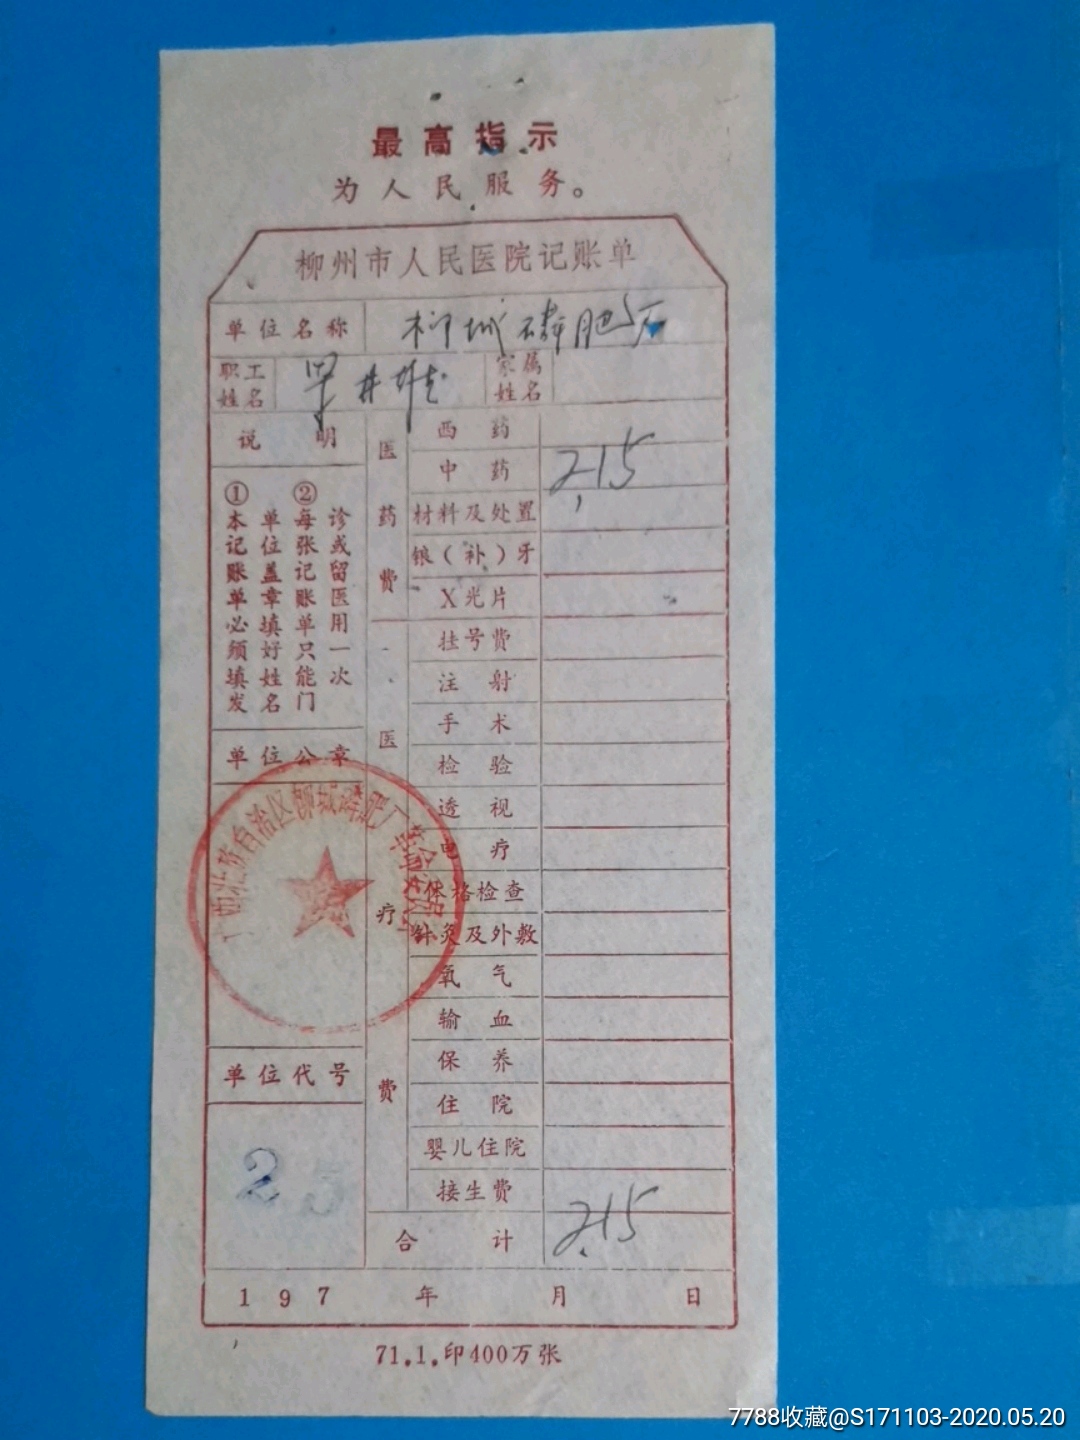 最高指示
为人民服务。
柳州市人民医院记账单
单位名称 柳城磷肥厂
职工姓名
家属姓名
说明
①本记账单必须填发
单位盖章填好姓名
②每张记账单只能门
诊或留医用一次
单位公章
广西壮族自治区柳城磷肥厂革命委员会
单位代号
25
医药费
西药
中药 2.15
材料及处置
镶(补)牙
X光片
医疗费
挂号费
注射
手术
检验
透视
电疗
体格检查
针灸及外敷
氧气
输血
保养
住院
婴儿住院
接生费
合计 2.15
197 年 月 日
71.1.印400万张
7788收藏@S171103-2020.05.20